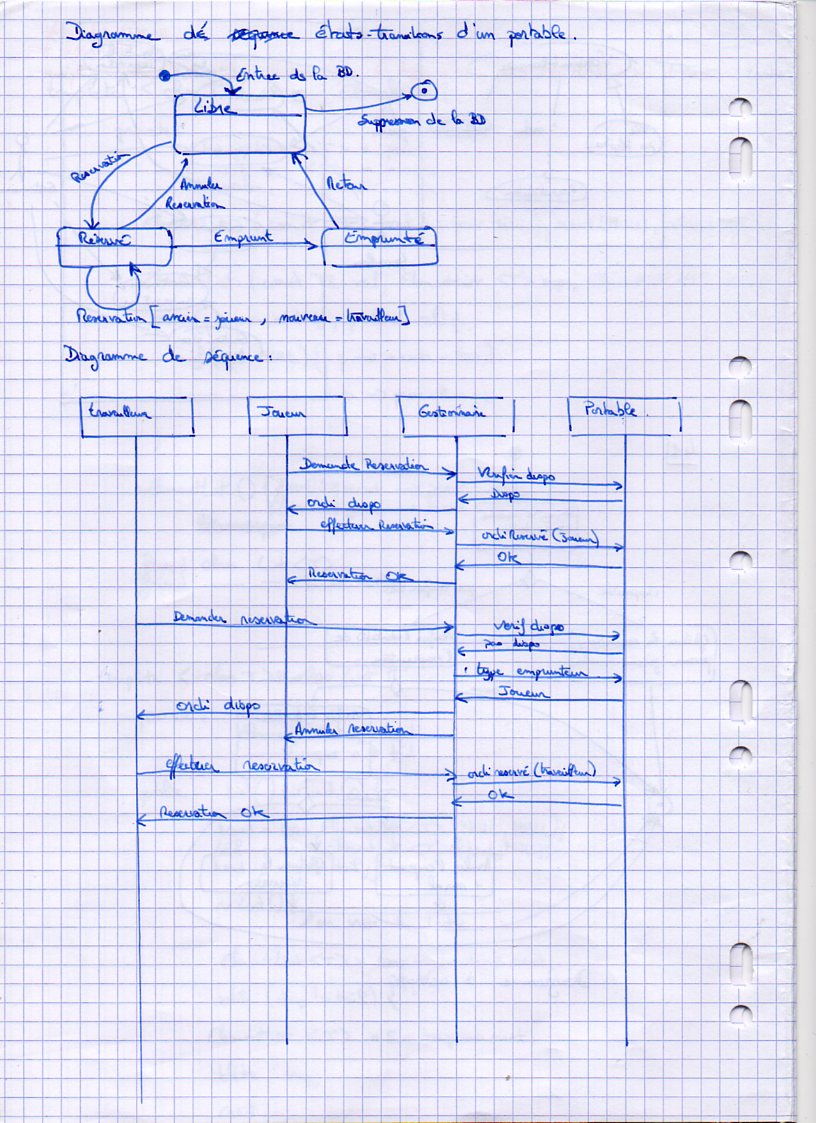 Diagramme de séquence états-transitions d'un portable.
Entree ds la BD.
Libre
Suppression de la BD
Reservation
Annuler
Reservation
Retour
Réservé
Emprunt
Emprunté
Reservation [ancien = joueur, nouveau = travailleur]
Diagramme de séquence :
travailleur Joueur Gestionnaire Portable.
Demande Reservation
Verifier dispo
Dispo
ordi dispo
effectuer Reservation
ordi Reservé (Joueur)
OK
Reservation OK
Demander reservation
Verif dispo
pas dispo
type emprunteur
Joueur
ordi dispo
Annuler reservation
effectuer reservation
ordi reservé (travailleur)
OK
Reservation OK